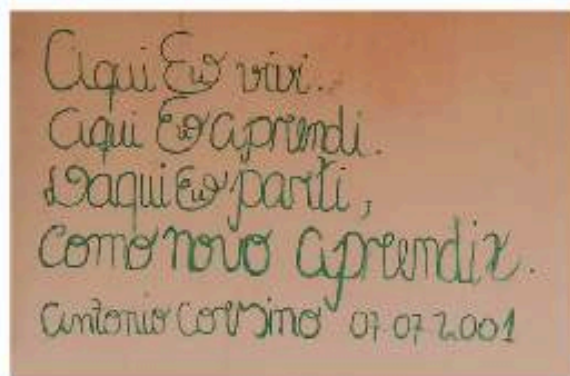 Aqui Eu vivi.
Aqui Eu aprendi.
Daqui Eu parti,
como novo aprendiz.
Antonio Corsino 07.07.2.001